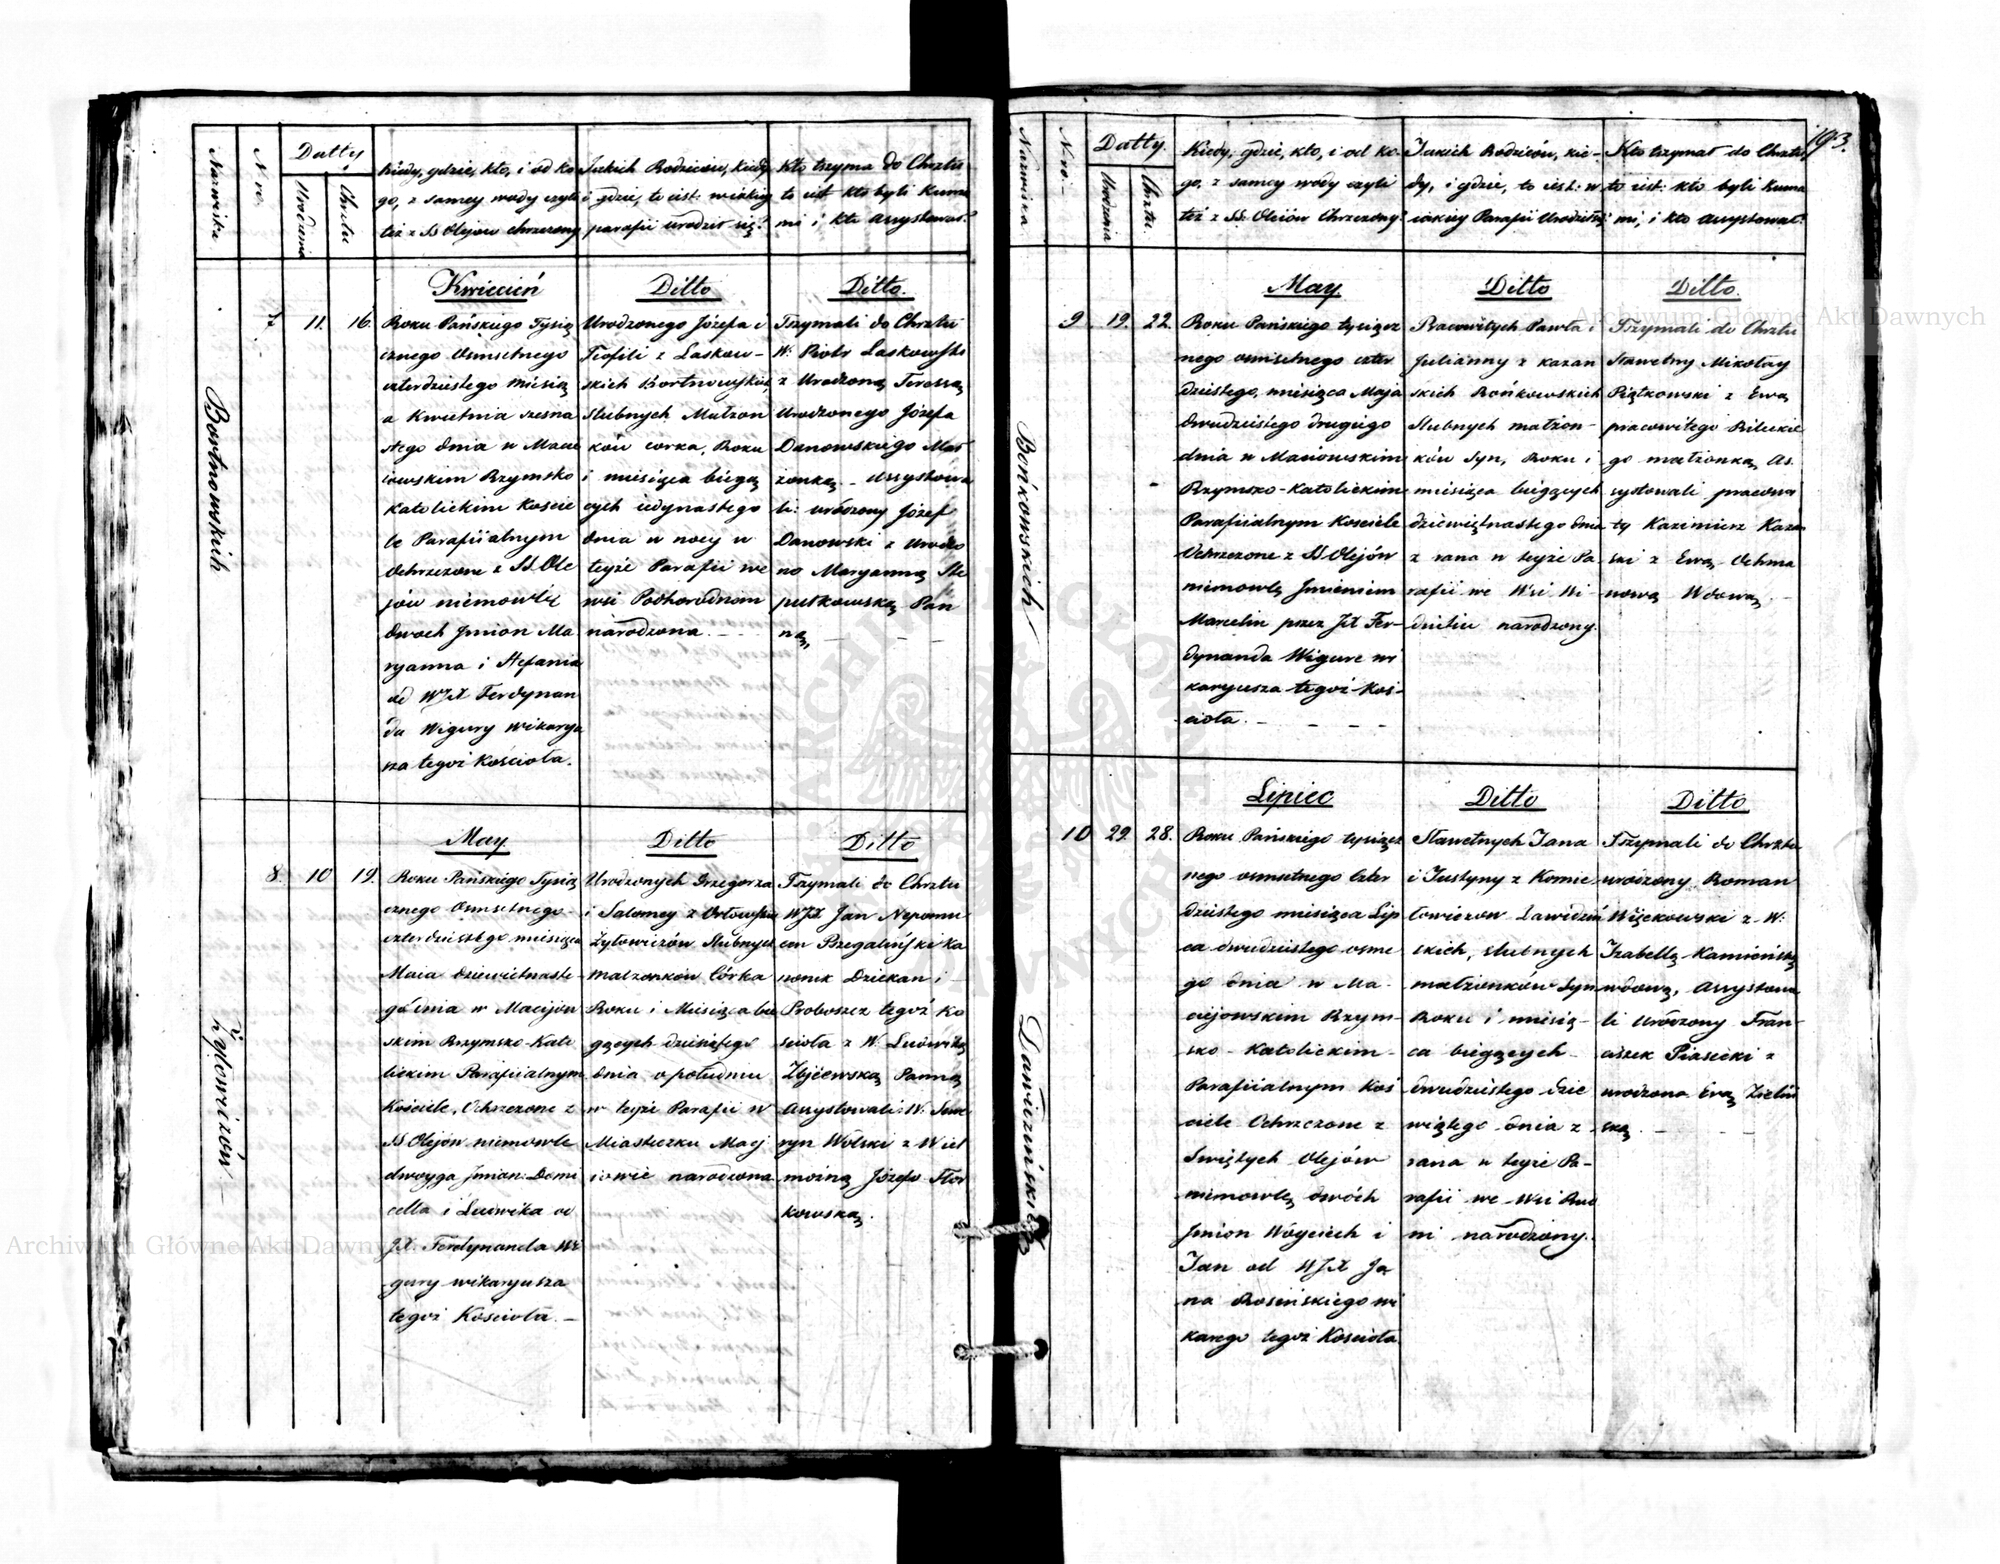 Nazwiska
Nro.
Datty
Urodzenia
Chrztu
Kiedy, gdzie, kto, i od ko
go, z samey wody czyli
też z SS Olejów chrzczony
Jakich Rodziców, kiedy
i gdzie, to iest: w iakiey
parafii urodził się?
Kto trzyma do Chrztu
to iest kto byli Kuma
mi i kto assystował?
Bortnowskich
7.
11.
16.
Kwiecień
Roku Pańskiego Tysią
cznego Osmsetnego
czterdziestego miesią
a Kwietnia szesna
stego dnia w Maci
iowskim Rzymsko
Katolickim Koscie
le Parafiialnym
Ochrzczone z SS Ole
jów niemowlę
dwoch Jmion Ma
ryanna i Stefania
od WJX Ferdynan
da Wigury wikaryu
sza tegoż Kościoła.
Ditto
Urodzonego Józefa i
Teofili z Laskow-
skich Bortnowskich
slubnych Małżon
ków corka, Roku
i miesiąca bieżą
cych iedynastego
dnia w nocy w
teyże Parafii we
wsi Podhorodnom
narodzona.
Ditto.
Trzymali do Chrztu
W: Piotr Laskowski
z Urodzoną Teressą
Urodzonego Józefa
Danowskiego Mał
żonką - assystowa
li: urodzony Józef
Danowski z Urodzo
no Maryanną Ste
putkowską Pan
ną,
Żyłowiczów
8.
10
19.
May
Roku Pańskiego Tysią
cznego Osmsetnego
czterdziestego miesiąca
Maia dziewietnaste-
go dnia w Macijow
skim Rzymsko-Kato
lickim Parafiialnym
Kościele, Ochrzczone z
SS Olejów niemowle
dwoyga Jmion: Domi
cella i Ludwika od
JX Ferdynanda Wi
gury wikaryusza
tegoż Kościoła. -
Ditto
Urodzonych Grzegorza
i Salomey z Orłowskich
Żyłowiczów Slubnych
małzonków Córka
Roku i Miesiąca bie
gących dziesiątego
dnia o południu
w teyże Parafii w
Miasteczku Macj
iowie narodzona
Ditto
Trzymali do Chrztu
WJX Jan Nepomu
cen Przegaliński Ka
nonik Dziekan i
Proboszcz tegoż Ko
scioła z W. Ludwiką
Zbjiewską Panną
assystowali: W. Sewe
ryn Wolski z Wiel
możną Józefą Flor
kowską.
193.
Nazwiska
Nro.
Datty.
Urodzenia
Chrztu.
Kiedy, gdzie, kto, i od ko-
go, z samey wody czyli
też z SS. Olejów Chrzczony?
Jakich Rodziców, kie-
dy, i gdzie, to iest: w
iakiey Parafii Urodził się
Kto trzymał do Chrztu,
to iest: kto byli Kuma
mi, i kto assystował?
Bońkowskich
9
19.
22.
May
Roku Pańskiego tysiącz
nego osmsetnego czter
dziestego, miesiąca Maja
dwudziestego drugiego
dnia w Maciowskim
Rzymsko-Katolickim
Parafiialnym Kosciele
Ochrzczone z SS Olejów
niemowlę Jmieniem
Marcelin przez JX Fer-
dynanda Wigure wi
karyusza tegoż Koś-
cioła.
Ditto
Pracowitych Pawła i
Julianny z Kazan
skich Bońkowskich
Slubnych małżon-
ków Syn, Roku i
miesiąca biegących
dziewiętnastego dnia
z rana w teyże Pa-
rafii we Wsi Wi-
dniliu narodzony.
Ditto.
Trzymali do Chrztu
Sławetny Mikołay
Piątkowski z Ewą
pracowitego Bileckie
go małżonką, As.
systowali pracowi
ty Kazimierz Kazan
ski z Ewą Ochma
nową Wdową.
Dawidzińskich
10
29.
28.
Lipiec
Roku Pańskiego tysiącz
nego osmsetnego Czter
dziestego miesiąca Lip
ca dwudziestego osme
go dnia w Ma-
ciejowskim Rzym-
sko-Katolickim-
Parafiialnym Koś
ciele Ochrzczone z
Swiętych Olejów
niemowlę dwóch
Jmion Wóyciech i
Jan od WJX Ja
na Rosińskiego wi
karego tegoż Kościoła
Ditto
Sławetnych Jana
i Justyny z Kornie
łowiczow Dawidziń
skich, slubnych
małżonków Syn
Roku i miesią-
ca biegących
dwudziestego dzie
wiątego dnia z
rana w teyże Pa-
rafii we Wsi Ru
ni narodzony.
Ditto
Trzymali do Chrztu
urodzony Roman
Więckowski z W.
Izabellą Kamieńską
wdową, Assystowa
li urodzony Fran-
ciszek Piasecki z
urodzoną Ewą Zieliń
ską.
Archiwum Główne Akt Dawnych
Archiwum Główne Akt Dawnych